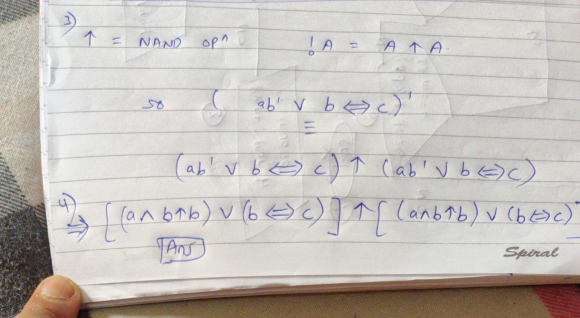 3) ↑ = NAND opn !A = A ↑ A.
so ( ab' ∨ b ⇔ c)'
≡
(ab' ∨ b ⇔ c) ↑ (ab' ∨ b ⇔ c)
4) ⇒ [(a ∧ b↑b) ∨ (b ⇔ c)] ↑ [(a∧b↑b) ∨ (b⇔c)
Ans
Spiral